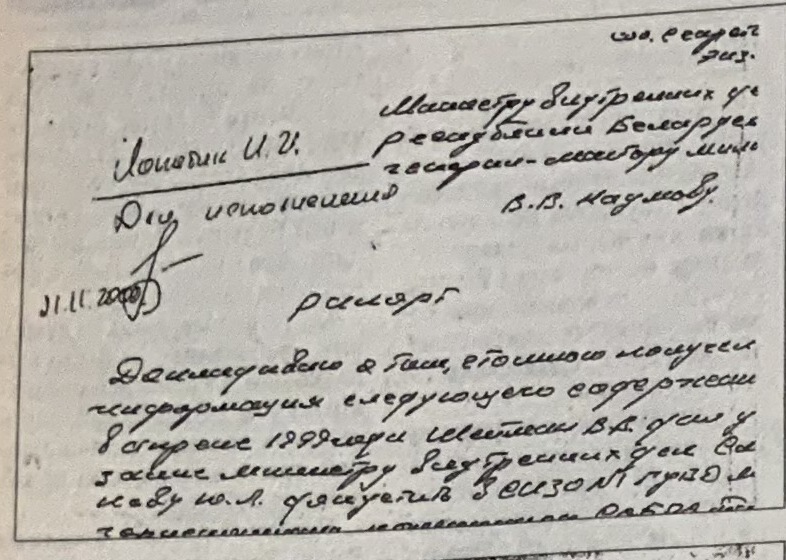 экз.
Министру внутренних де
республики Беларусь
генерал-майору мили
В.В. Наумову.
Лопатик И.И.
Для исполнения
21.11.2000
рапорт
Докладываю о том, что мною получен
информация следующего содержани
в апреле 1999 года Шейман В.В. дал у
зание министру внутренних дел
Ю.Л. допустить в СИЗО №1 ГУВД м